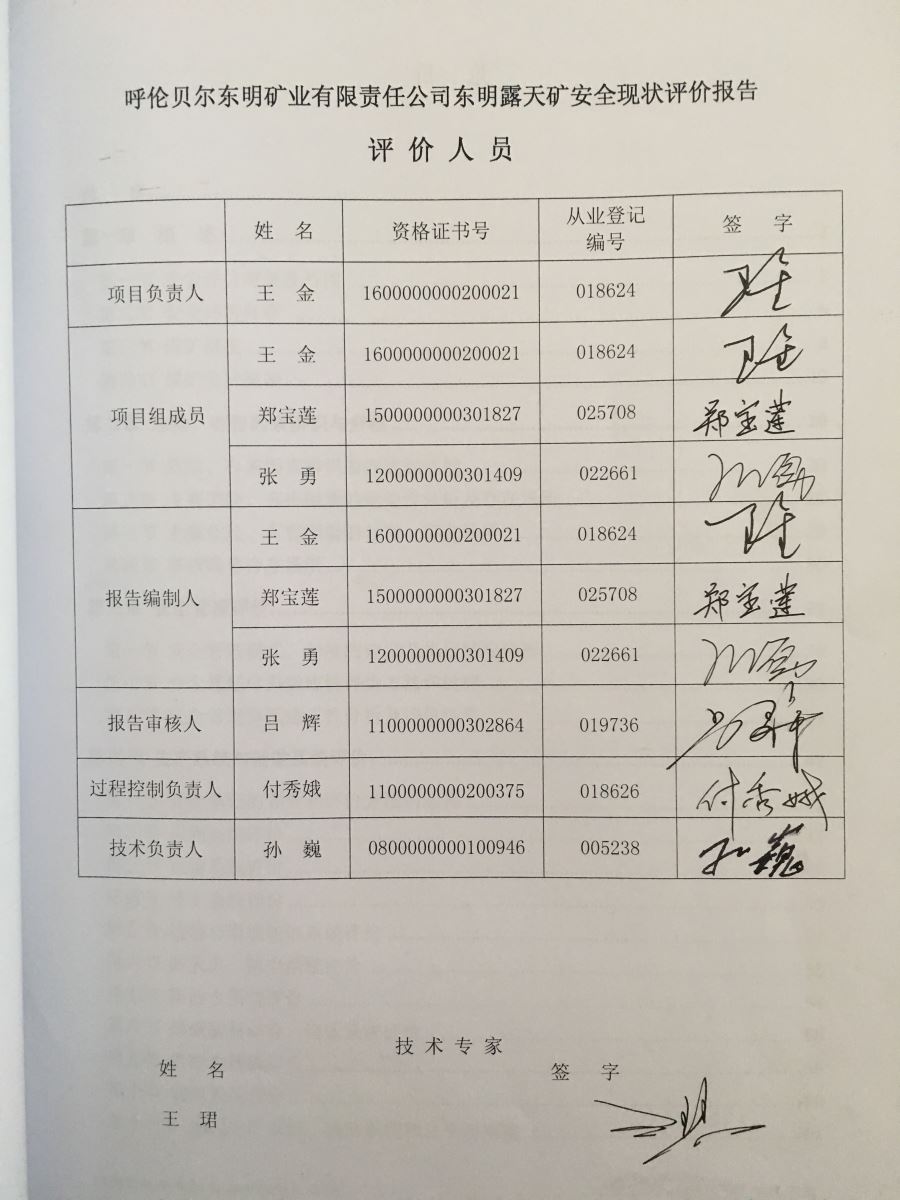 呼伦贝尔东明矿业有限责任公司东明露天矿安全现状评价报告
评 价 人 员
姓 名 资格证书号 从业登记编号 签 字
项目负责人 王 金 1600000000200021 018624 王金
项目组成员 王 金 1600000000200021 018624 王金
郑宝莲 1500000000301827 025708 郑宝莲
张 勇 1200000000301409 022661
报告编制人 王 金 1600000000200021 018624 王金
郑宝莲 1500000000301827 025708 郑宝莲
张 勇 1200000000301409 022661
报告审核人 吕 辉 1100000000302864 019736
过程控制负责人 付秀娥 1100000000200375 018626 付秀娥
技术负责人 孙 巍 0800000000100946 005238 孙巍
技 术 专 家
姓 名 签 字
王 珺